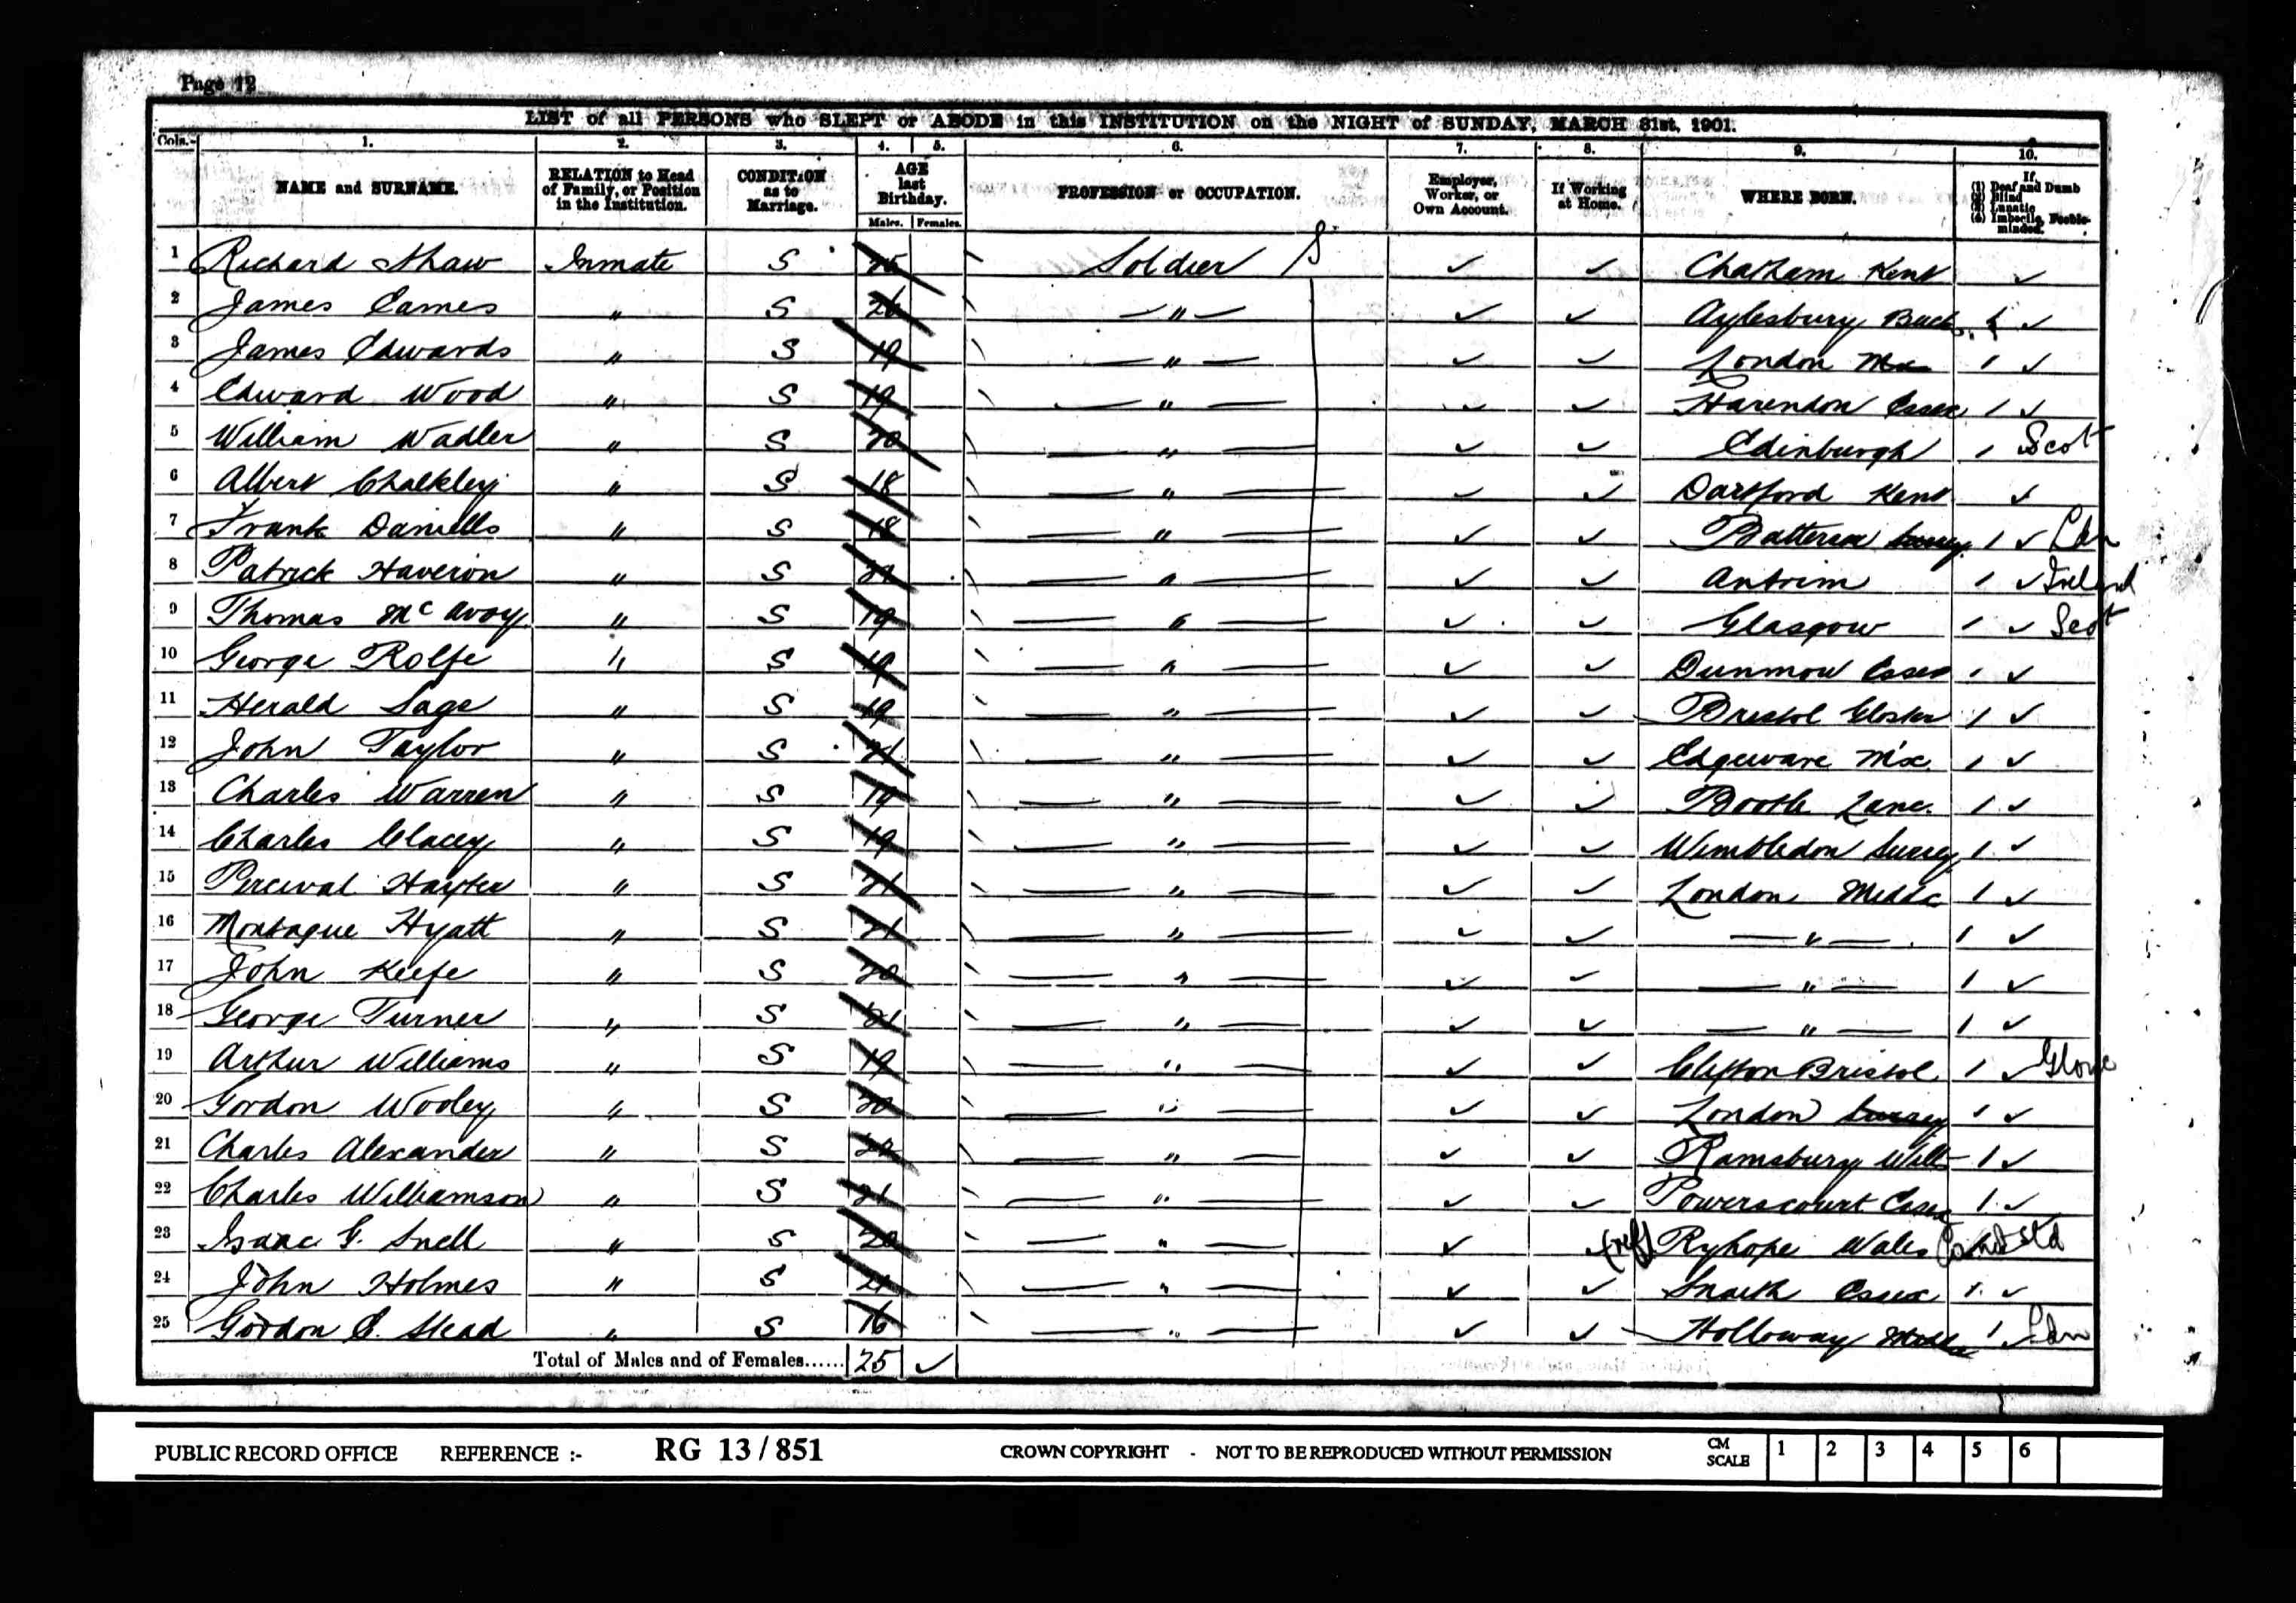 Page 12
LIST of all PERSONS who SLEPT or ABODE in this INSTITUTION on the NIGHT of SUNDAY, MARCH 31st, 1901.
Cols.- 1. 2. 3. 4. 5. 6. 7. 8. 9. 10.
NAME and SURNAME. RELATION to Head of Family, or Position in the Institution. CONDITION as to Marriage. AGE last Birthday. PROFESSION or OCCUPATION. Employer, Worker, or Own Account. If Working at Home. WHERE BORN. If (1) Deaf and Dumb (2) Blind (3) Lunatic (4) Imbecile, Feeble-minded.
Males. Females.
1 Richard Shaw Inmate S Soldier ✓ ✓ Chatham Kent ✓
2 James Eames " S 26 — " — ✓ ✓ Aylesbury Bucks. 1 ✓
3 James Edwards " S 19 — " — ✓ ✓ London Mx 1 ✓
4 Edward Wood " S 19 — " — ✓ ✓ Essex 1 ✓
5 William Wadler " S 20 — " — ✓ ✓ Edinburgh 1 Scot
6 Albert Chalkley " S 18 — " — ✓ ✓ Dartford Kent ✓
7 Frank Daniells " S 18 — " — ✓ ✓ Battersea Surrey 1 ✓ Ldn
8 Patrick Haveron " S — " — ✓ ✓ Antrim 1 ✓ Ireland
9 Thomas McAvoy " S 19 — " — ✓ ✓ Glasgow 1 ✓ Scot
10 George Rolfe " S 19 — " — ✓ ✓ Dunmow Essex 1 ✓
11 Herald Sage " S 19 — " — ✓ ✓ Bristol Gloster 1 ✓
12 John Taylor " S 21 — " — ✓ ✓ Edgeware M'x. 1 ✓
13 Charles Warren " S 19 — " — ✓ ✓ Bootle Lanc. 1 ✓
14 Charles Clacey " S 19 — " — ✓ ✓ Wimbledon Surrey 1 ✓
15 Percival Hayter " S 21 — " — ✓ ✓ London Middx 1 ✓
16 Montague Hyatt " S 21 — " — ✓ ✓ — " — 1 ✓
17 John Keefe " S 20 — " — ✓ ✓ — " — 1 ✓
18 George Turner " S 21 — " — ✓ ✓ — " — 1 ✓
19 Arthur Williams " S 19 — " — ✓ ✓ Clifton Bristol 1 ✓ Glouc
20 Gordon Wooley " S 20 — " — ✓ ✓ London Surrey 1 ✓
21 Charles Alexander " S — " — ✓ ✓ Ramsbury Wilts 1 ✓
22 Charles Williamson " S 21 — " — ✓ ✓ Powerscourt Essex 1 ✓
23 Isaac G. Snell " S 20 — " — ✓ Ryhope Wales
24 John Holmes " S 21 — " — ✓ ✓ Snaith Essex 1 ✓
25 Gordon C. Stead " S 16 — " — ✓ ✓ Holloway Middx 1 ✓ Ldn
Total of Males and of Females...... 25 ✓
PUBLIC RECORD OFFICE REFERENCE :- RG 13 / 851 CROWN COPYRIGHT - NOT TO BE REPRODUCED WITHOUT PERMISSION CM SCALE 1 2 3 4 5 6